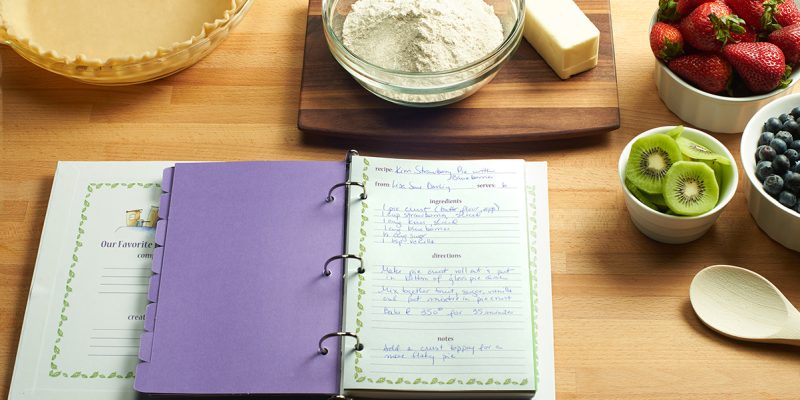 Our Favorite
comp
creat
recipe: Kiwi Strawberry Pie with
Blueberries
from: Lisa Sare serves: 6
ingredients
1 pie crust (butter, flour, egg)
1 cup strawberries, sliced
1 cup kiwi, sliced
1 cup blueberries
½ cup sugar
1 tsp vanilla
directions
Make pie crust, roll out & put
in bottom of glass pie dish
Mix together fruit, sugar, vanilla
and put mixture in pie crust
Bake @ 350° for 35 minutes
notes
Add a crust topping for a
more flaky pie